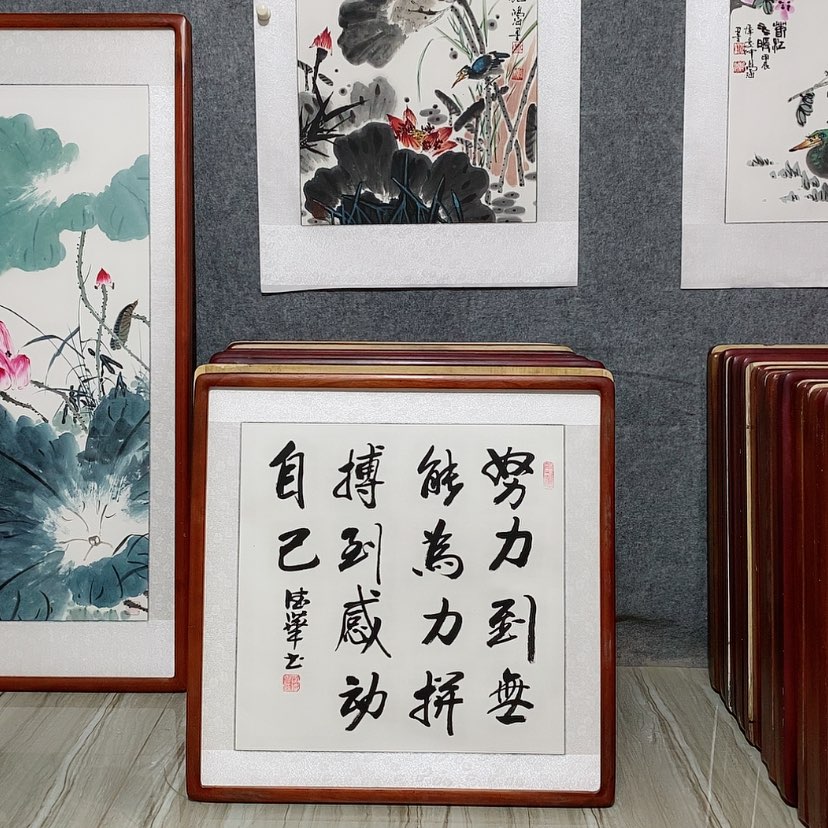 努力到無
能為力拼
搏到感动
自己
德華书